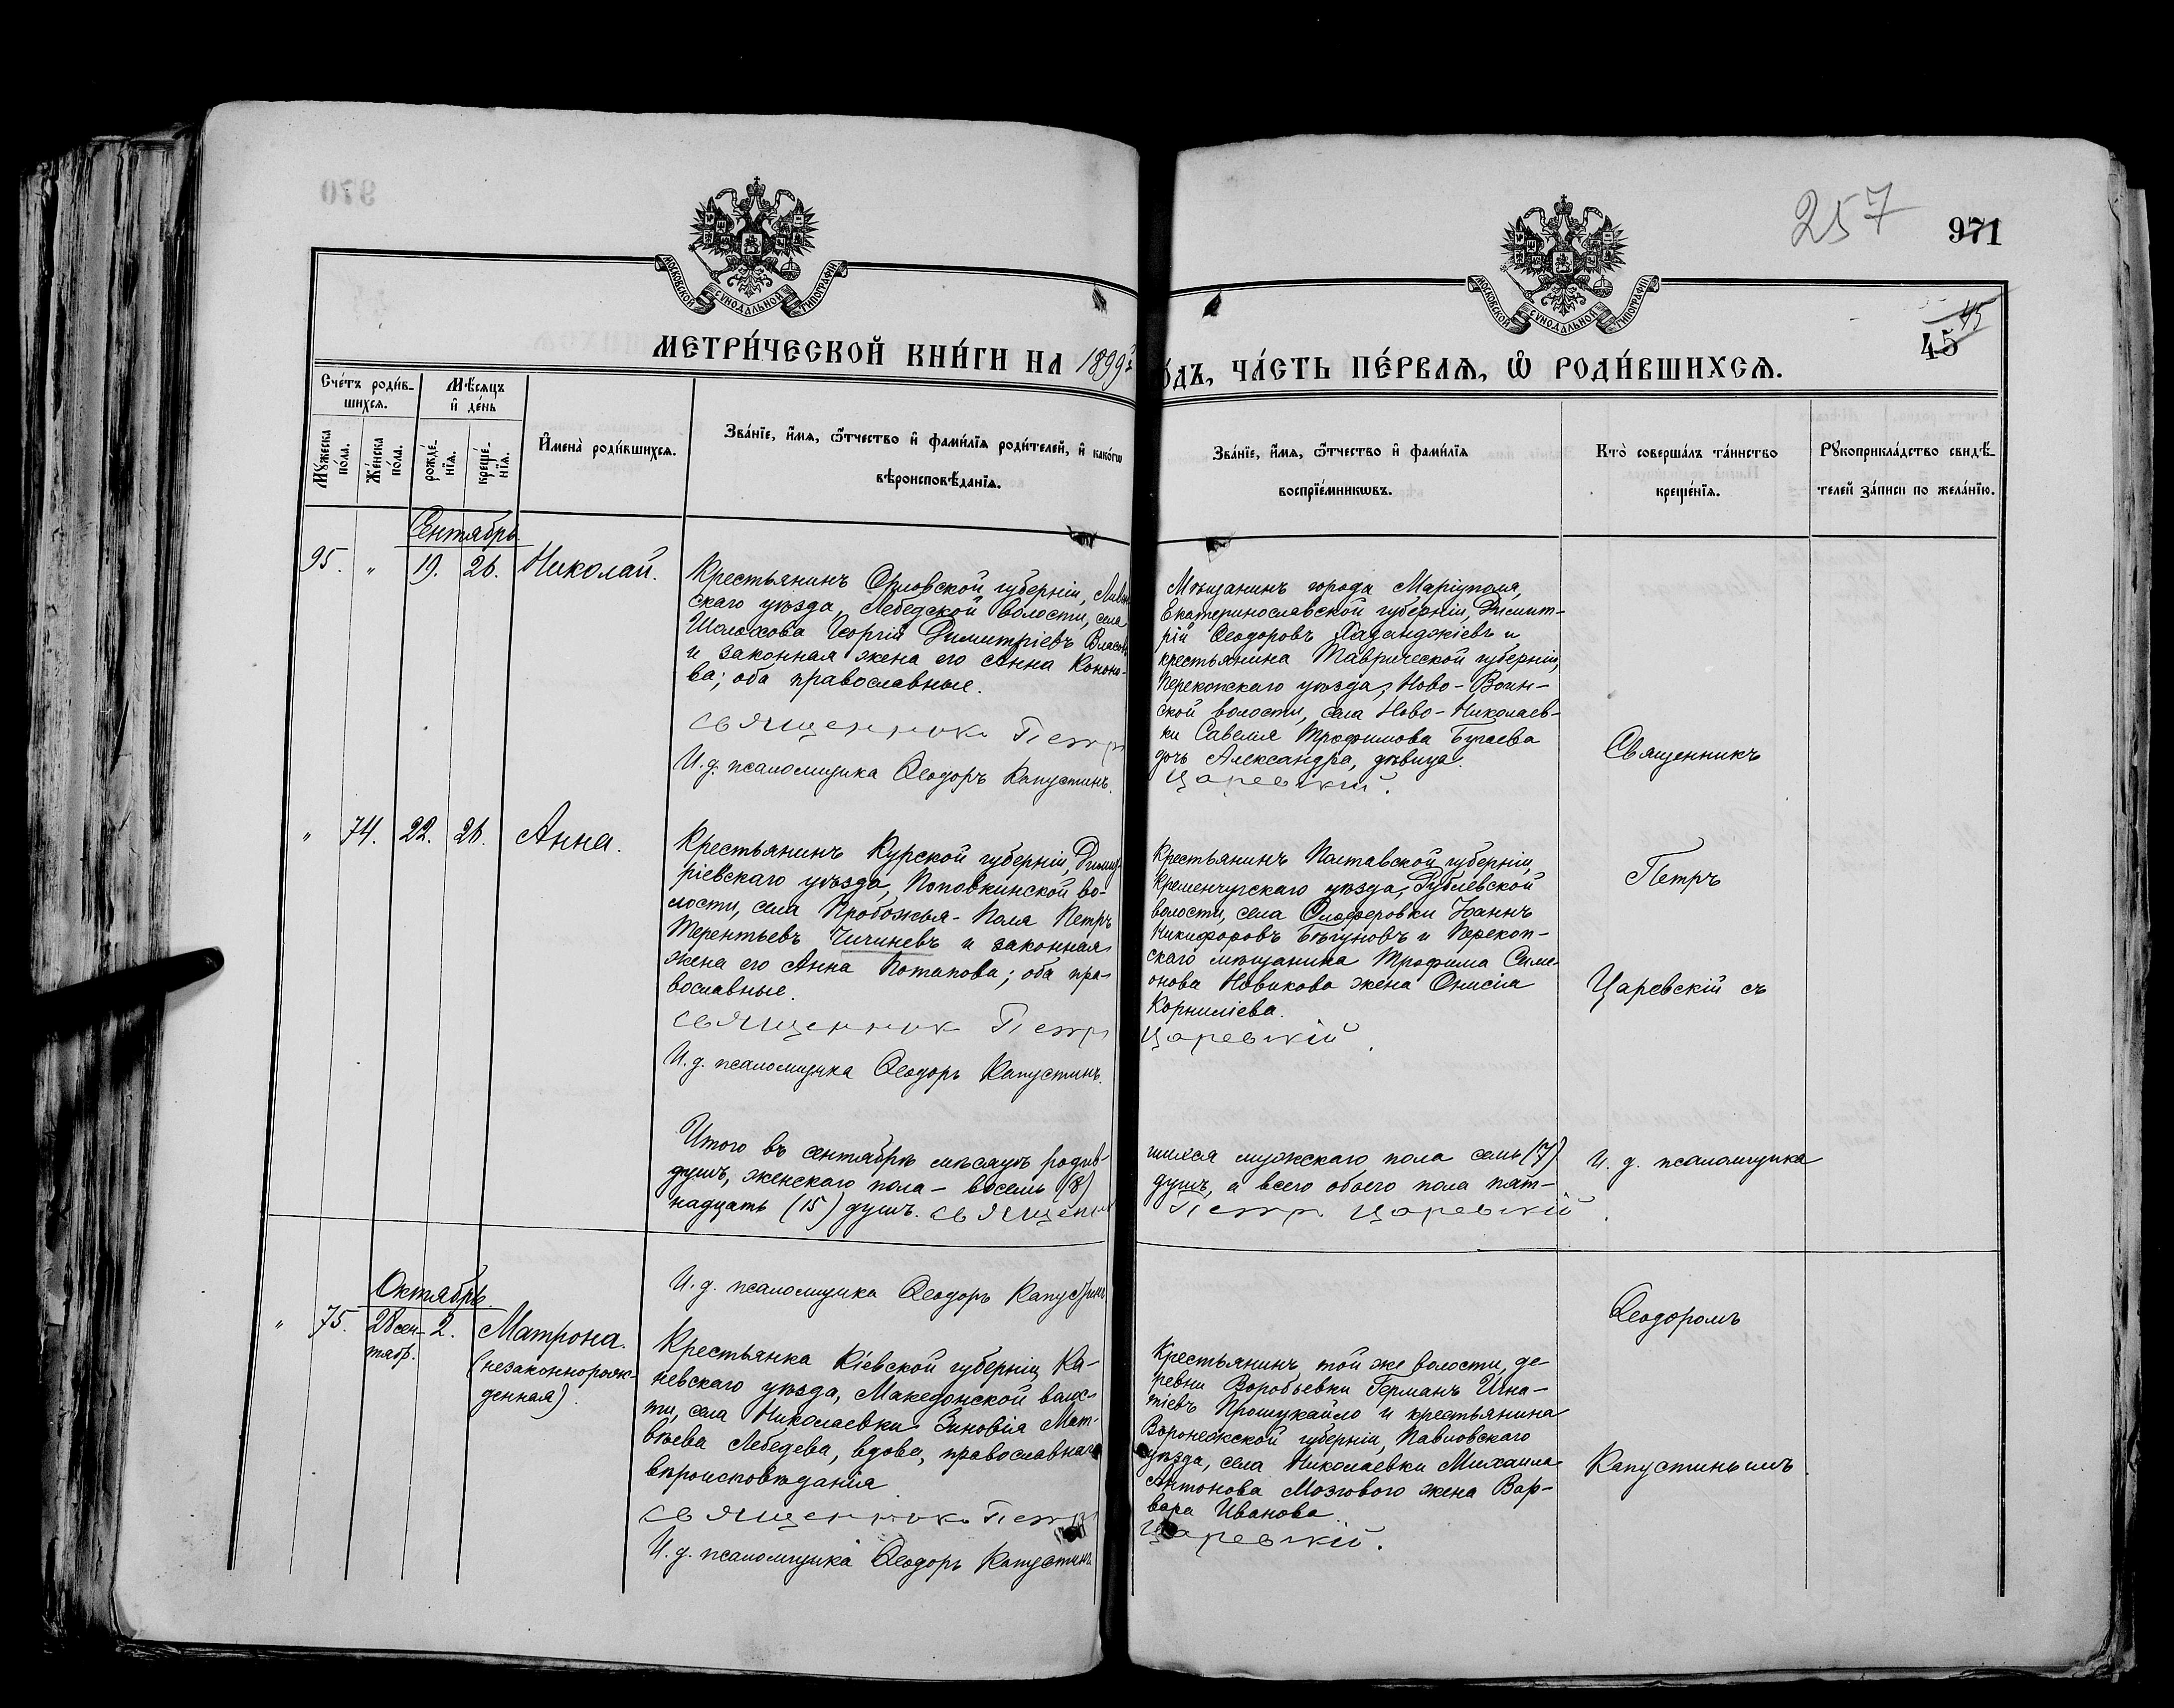 970
257
971
МОСКОВСКОЙ СѴНОДАЛЬНОЙ ТИПОГРАФІИ
МОСКОВСКОЙ СѴНОДАЛЬНОЙ ТИПОГРАФІИ
45
45
МЕТРИ́ЧЕСКОЙ КНИ́ГИ НА 1899
ДЪ, ЧА́СТЬ ПЕ́РВАѦ, Ѽ РОДИ́ВШИХСѦ.
Сче́тъ роди́в-
шихсѧ.
Мѣ́сѧцъ
и҆ де́нь
Мꙋжеска
по́ла.
Же́нска
по́ла.
рожде́-
нїѧ.
креще́-
нїѧ.
И҆мена̀ роди́вшихсѧ.
Зва́нїе, и҆́мѧ, ѻ҆́тчество и҆ фами́лїѧ роди́телей, и҆ како́гѡ
вѣроисповѣ́данїѧ.
Зва́нїе, и҆́мѧ, ѻ҆́тчество и҆ фами́лїѧ
воспрїе́мникѡвъ.
Кто̀ соверша́лъ та́инство
креще́нїѧ.
Рꙋкоприкла́дство свидѣ́-
телей за́писи по жела́нїю.
Сентябрь
95. " 19. 26. Николай.
Крестьянинъ Орловской губерніи,
скаго уѣзда, Лебедской волости, села
Шолохова Георгій Димитріевъ Власовъ
и законная жена его Анна Конона-
ва; оба православные.
Священникъ Петръ
И. д. псаломщика Ѳеодоръ Капустинъ.
Мѣщанинъ города Маріуполя,
Екатеринославской губерніи, Димит-
рій Ѳеодоровъ Хаджиевъ и
крестьянина Таврической губерніи,
Перекопскаго уѣзда, Ново-Воин-
ской волости, села Ново-Николаев-
ки Савелія Трофимова Бугаева
дочь Александра, дѣвица.
Царевскій.
Священникъ
" 74. 22. 26. Анна.
Крестьянинъ Курской губерніи, Димит-
ріевскаго уѣзда, Поповкинской во-
лости, села Пробожья-Поля Петръ
Терентьевъ Чичиневъ и законная
жена его Анна Потапова; оба пра-
вославные.
Священникъ Петръ
И. д. псаломщика Ѳеодоръ Капустинъ.
Крестьянинъ Полтавской губерніи,
Кременчугскаго уѣзда, Рублевской
волости, села Олеферовки Іоаннъ
Никифоровъ Бѣгуновъ и Перекоп-
скаго мѣщанина Трофима Симе-
онова Новикова жена Онисія
Корниліева.
Царевскій.
Петръ
Царевскій съ
Итого въ сентябрѣ мѣсяцѣ родив-
шихся мужскаго пола семь (7)
душъ, женскаго пола – восемь (8)
душъ, а всего обоего пола пят-
надцать (15) душъ. Священникъ
Петръ Царевскій
И. д. псаломщика
И. д. псаломщика Ѳеодоръ Капустинъ
Октябрь.
" 75. 28 сен- 2. Матрона.
тябр.
(незаконнорож-
денная).
Крестьянка Кіевской губерніи, Ка-
невскаго уѣзда, Македонской волос-
ти, села Николаевки Зиновія Мат-
вѣева Лебедева, вдова, православнаго
вѣроисповѣданія
Священникъ Петръ
И. д. псаломщика Ѳеодоръ Капустинъ
Крестьянинъ той же волости, де-
ревни Воробьевки Германъ Игна-
тіевъ Прошукайло и крестьянина
Воронежской губерніи, Павловскаго
уѣзда, села Николаевки Михаила
Антонова Мозгового жена Вар-
вара Иванова.
Царевскій.
Ѳеодоромъ
Капустинымъ.